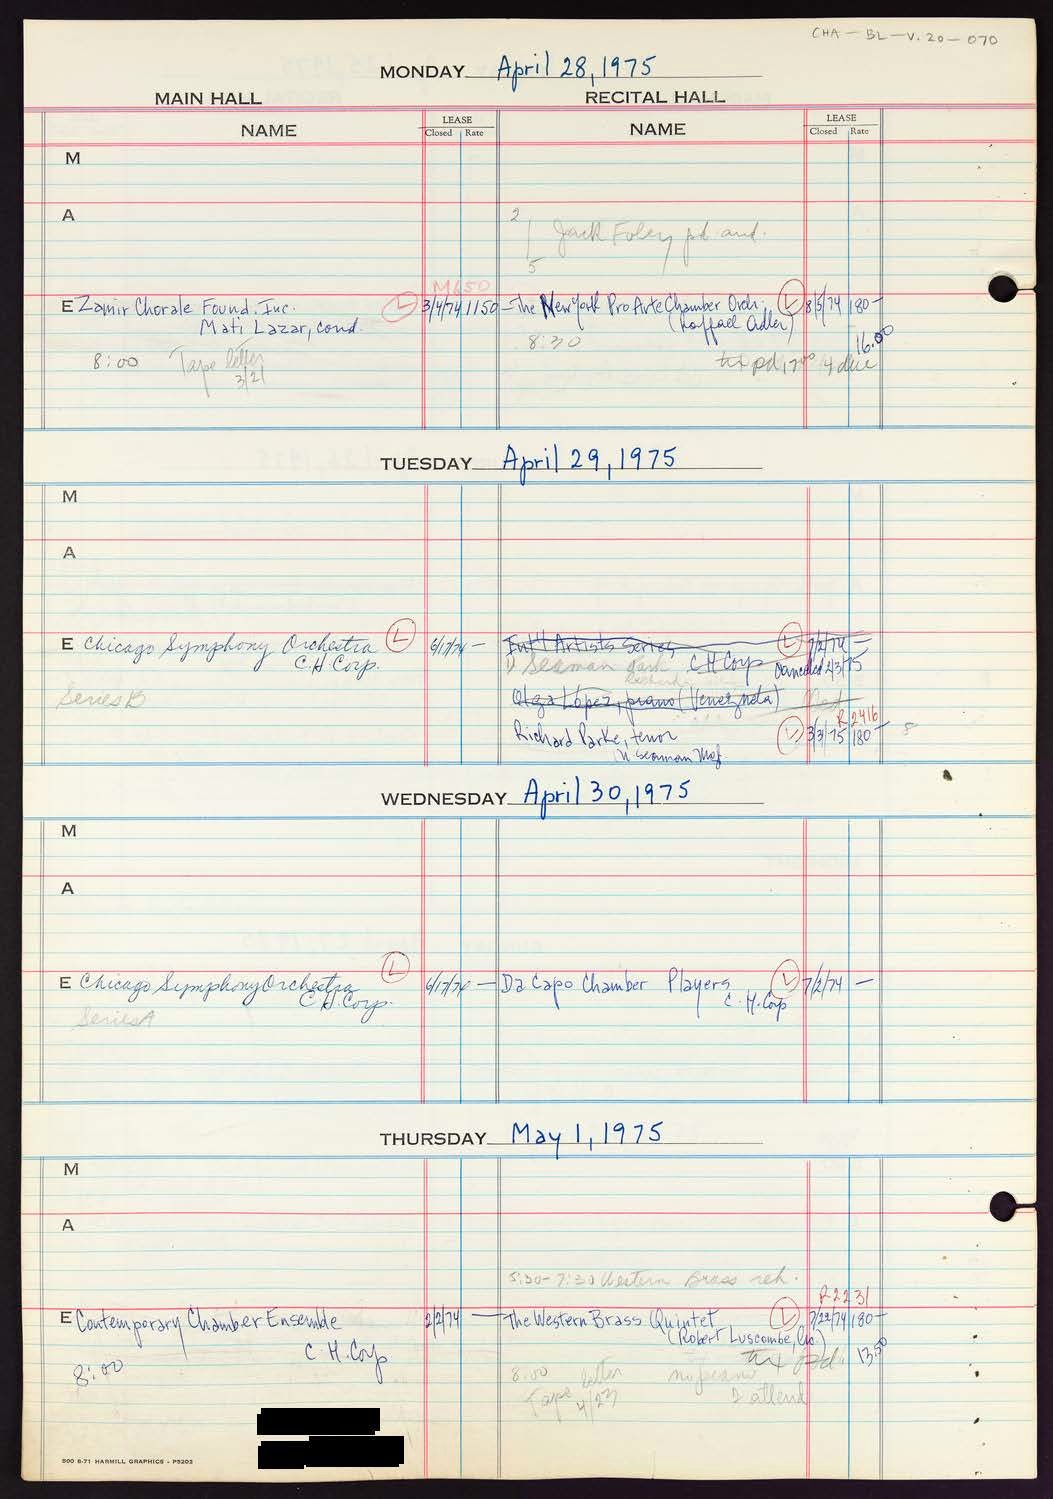 CHA-BL-V.20-070
MONDAY April 28, 1975
MAIN HALL RECITAL HALL
NAME LEASE Closed Rate NAME LEASE Closed Rate
M
A
2
Jack Foley pd and.
5
M650
E Zamir Chorale Found. Inc. L 3/4/74 1150 — The New York Pro Arte Chamber Orch. L 8/5/74 180 —
Mati Lazar, cond. (Raffael Adler)
8:00 Tape letter 8:30 16.00
3/21 tax pd 4 due
TUESDAY April 29, 1975
M
A
E Chicago Symphony Orchestra L 6/17/74 — Int'l Artists Series L 7/2/74 —
C.H. Corp. Seaman C H Corp Cancelled 2/3/75
Series B Olga Lopez, piano (Venezuela)
R 2416
Richard Parke, tenor L 3/3/75 180 —
N Seaman Mgt.
WEDNESDAY April 30, 1975
M
A
E Chicago Symphony Orchestra L 6/17/74 — Da Capo Chamber Players L 7/2/74 —
C.H. Corp. C.H. Corp
Series A
THURSDAY May 1, 1975
M
A
5:30-7:30 Western Brass reh.
R2231
E Contemporary Chamber Ensemble 2/2/74 — The Western Brass Quintet L 7/22/74 180 —
C H. Corp (Robert Luscombe,
8:00 tax pd. 13.50
8:00 letter no piano
Tape 4/27 2 attend
500 6-71 HARHILL GRAPHICS - P5203